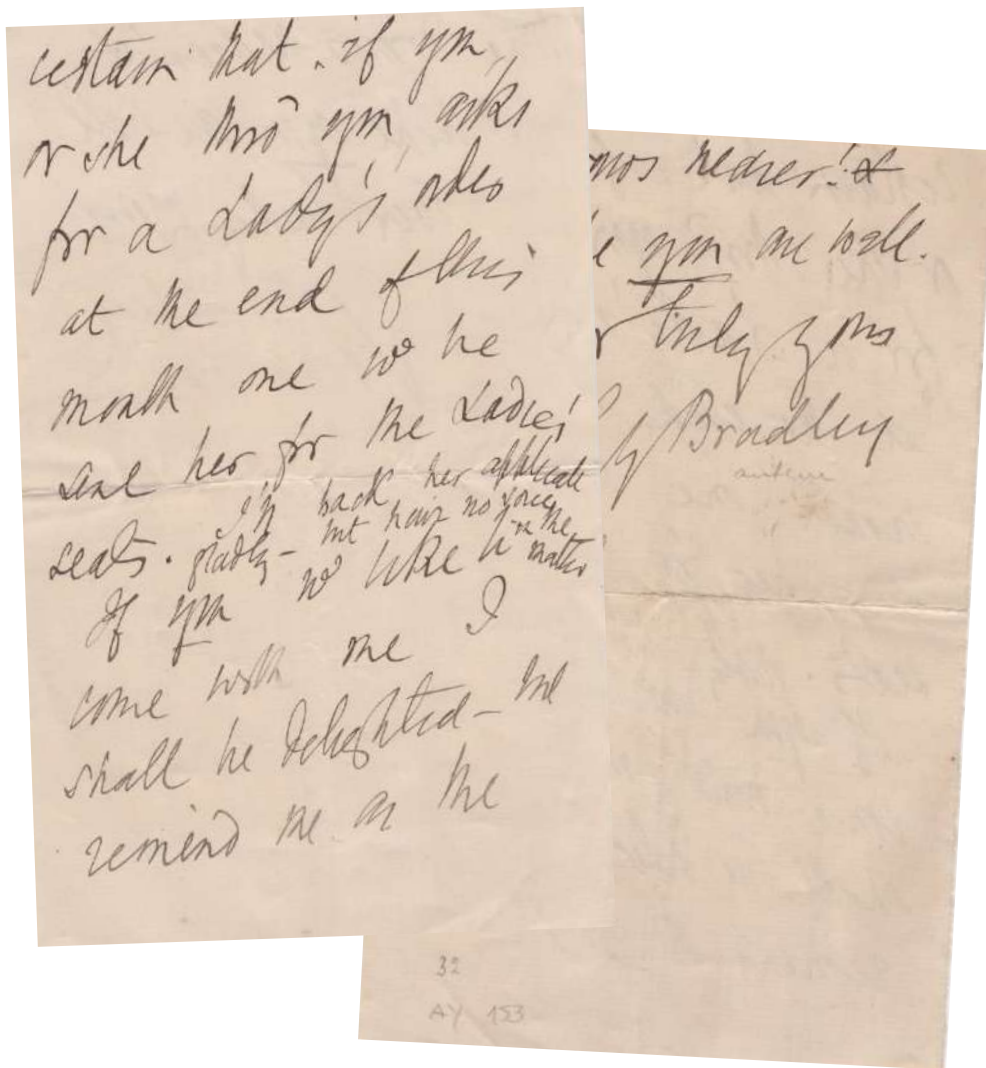 certain that. if you
or she thro' you asks
for a Lady's order
at the end of this
month one wd be
sent her for the Ladies'
seats. I'll back her applicate
gladly - but have no voice
in the matter
If you wd like to
come with me I
shall be delighted -
remind me as the
nearer! &
you are well.
truly yours
Bradley
32
AY 153